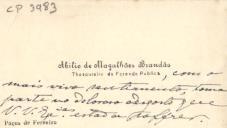 CP 3983
Abilio de Magalhães Brandão
Thesoureiro da Fazenda Publica, com o
mais vivo sentimento toma
parte no doloroso desgosto que
V. V. Ex.as estão a soffrer.
Paços de Ferreira